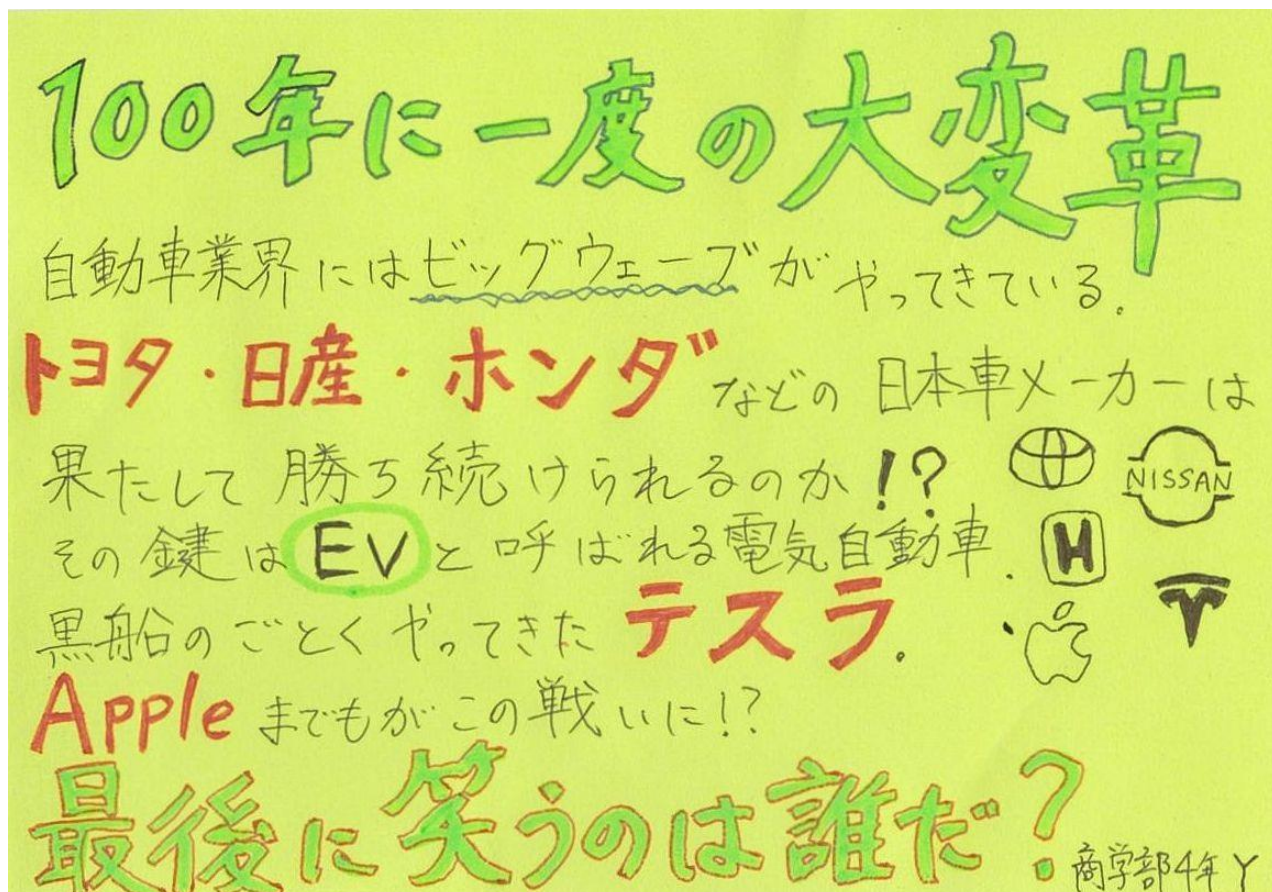 100年に一度の大変革
自動車業界にはビッグウェーブがやってきている.
トヨタ・日産・ホンダなどの日本車メーカーは
果たして勝ち続けられるのか!?
NISSAN
その鍵はEVと呼ばれる電気自動車.
H
黒船のごとくやってきたテスラ.
Appleまでもがこの戦いに!?
最後に笑うのは誰だ?
商学部4年 Y